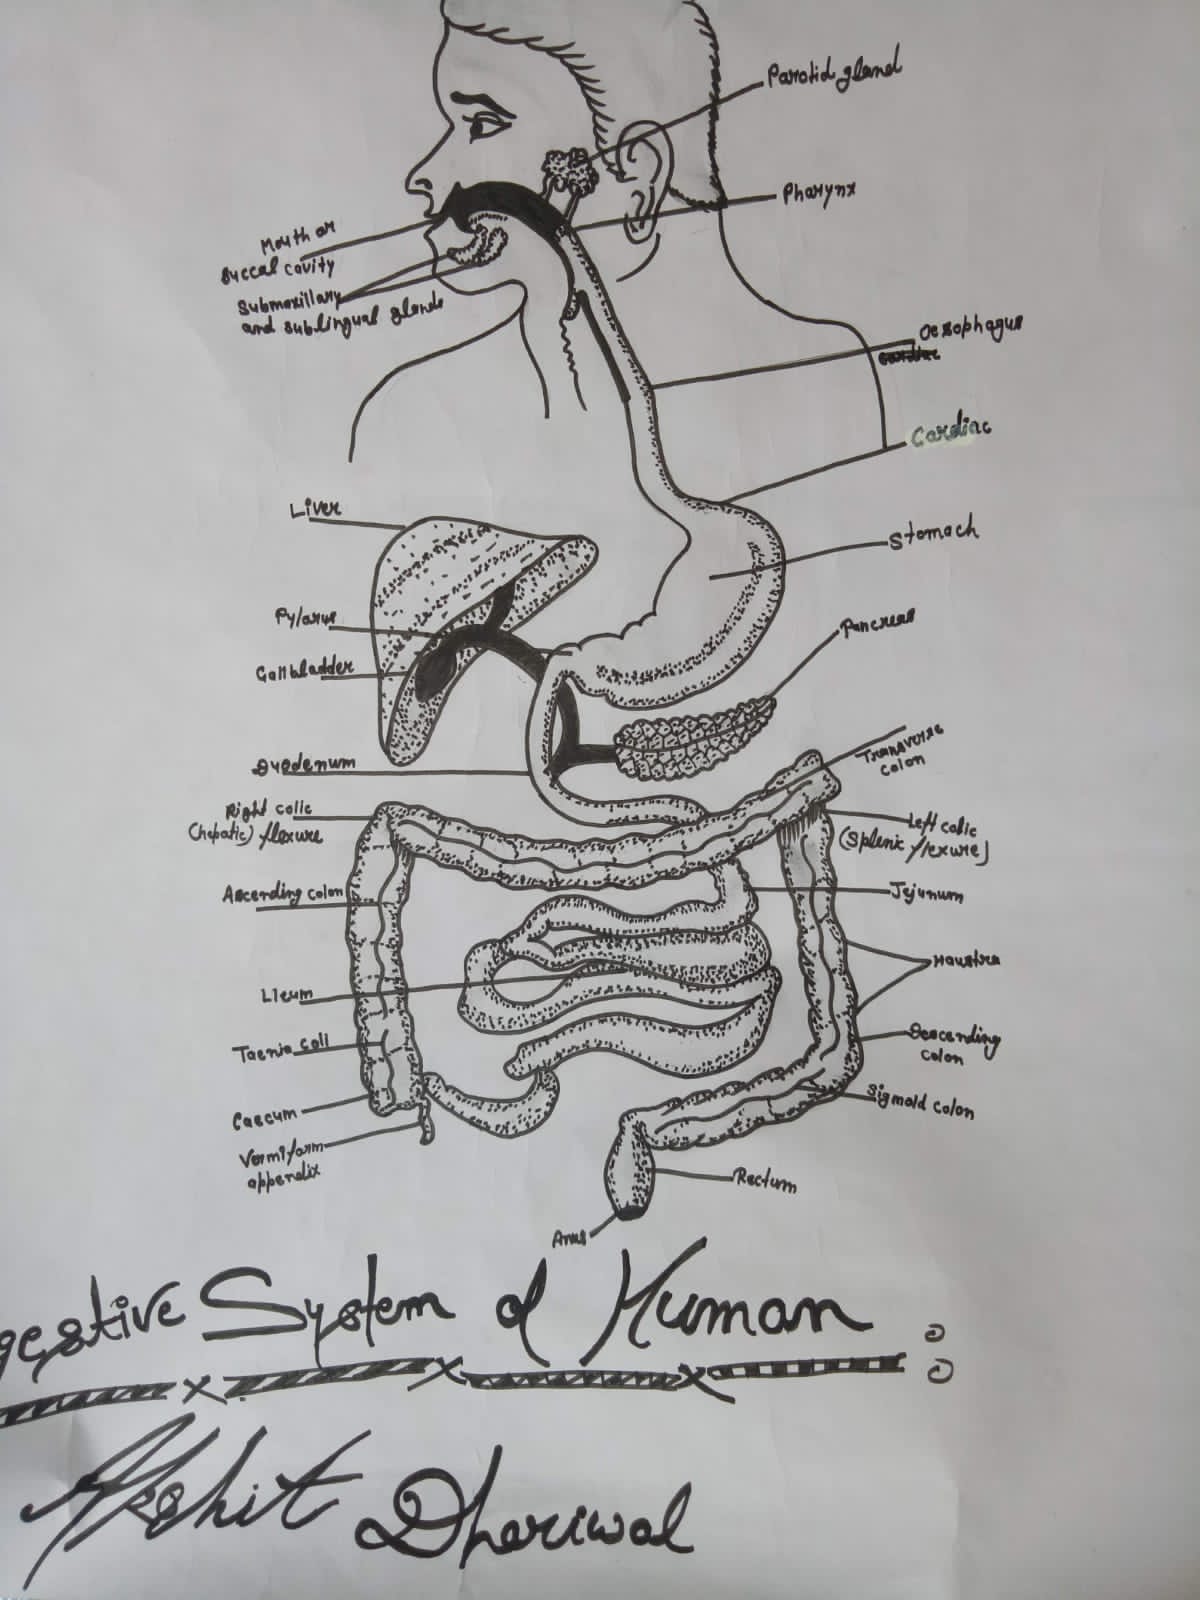 Parotid gland
Pharynx
Mouth or
Buccal cavity
Submaxillary
and sublingual glands
Oesophagus
Cardiac
Liver
Stomach
Pylorus
Pancreas
Gallbladder
Transverse
colon
Duodenum
Right colic
(hepatic) flexure
Left colic
(Splenic flexure)
Ascending colon
Jejunum
Haustra
Lieum
Descending
colon
Taenia coli
Sigmoid colon
Caecum
Vermiform
appendix
Rectum
Anus
gestive System of Human :
Akshit Dhariwal